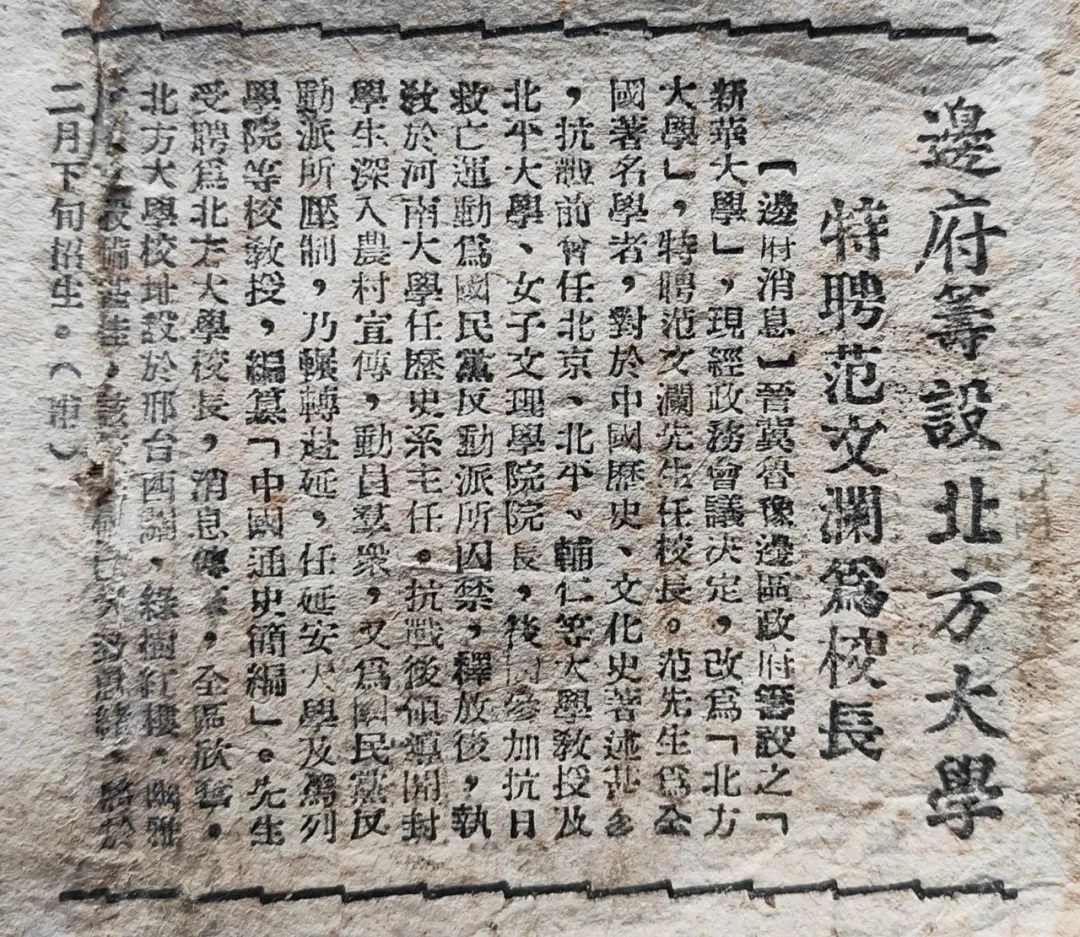 邊府籌設北方大學
特聘范文瀾爲校長
【邊府消息】晉冀魯豫邊區政府籌設之「
新華大學」，現經政務會議決定，改爲「北方
大學」，特聘范文瀾先生任校長。范先生爲全
國著名學者，對於中國歷史、文化史著述甚多
，抗戰前曾任北京、北平、輔仁等大學敎授及
北平大學、女子文理學院院長，後因參加抗日
救亡運動爲國民黨反動派所囚禁，釋放後，執
敎於河南大學任歷史系主任。抗戰後領導開封
學生深入農村宣傳，動員羣衆，又爲國民黨反
動派所壓制，乃輾轉赴延，任延安大學及馬列
學院等校敎授，編纂「中國通史簡編」。先生
受聘爲北方大學校長，消息傳來，全區欣奮。
北方大學校址設於邢台西關，綠樹紅樓，幽雅
設備甚佳，該校 將於
二月下旬招生。（浦）